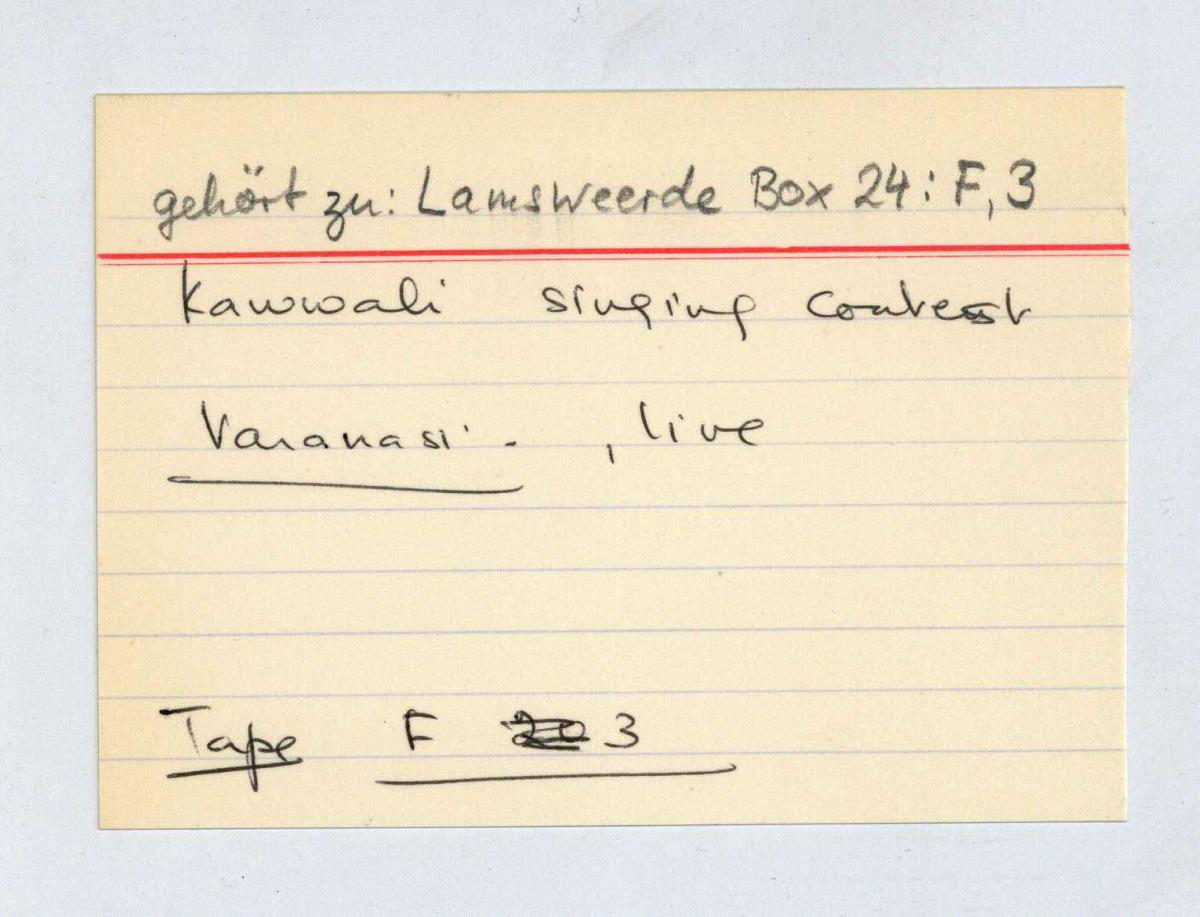 gehört zu: Lamsweerde Box 24: F, 3
Kawwali singing contest
Varanasi - , live
Tape F 3